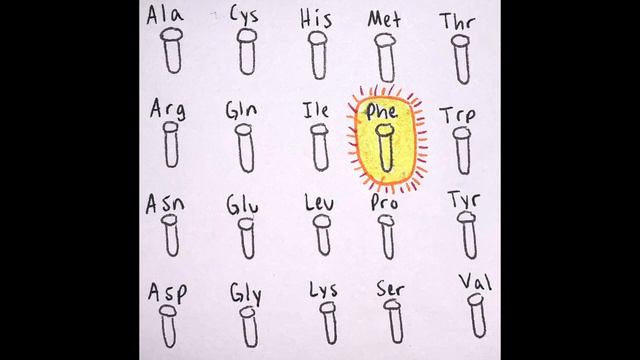 Ala Cys His Met Thr
Arg Gln Ile Phe Trp
Asn Glu Leu Pro Tyr
Asp Gly Lys Ser Val